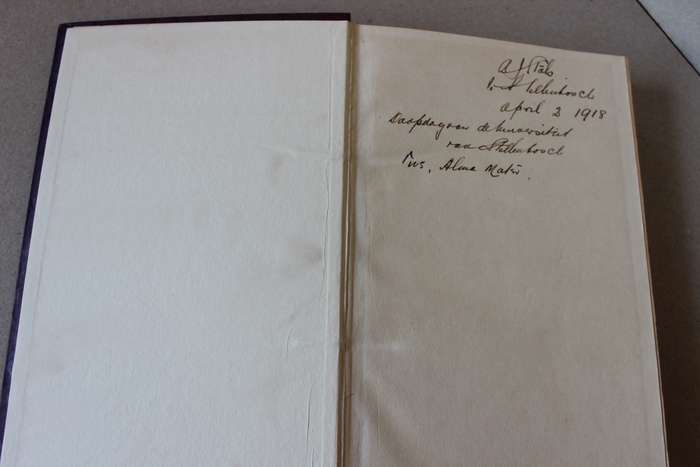 Stellenbosch
April 2 1918
Doopdag van de Universiteit
van Stellenbosch
Alma Mater.